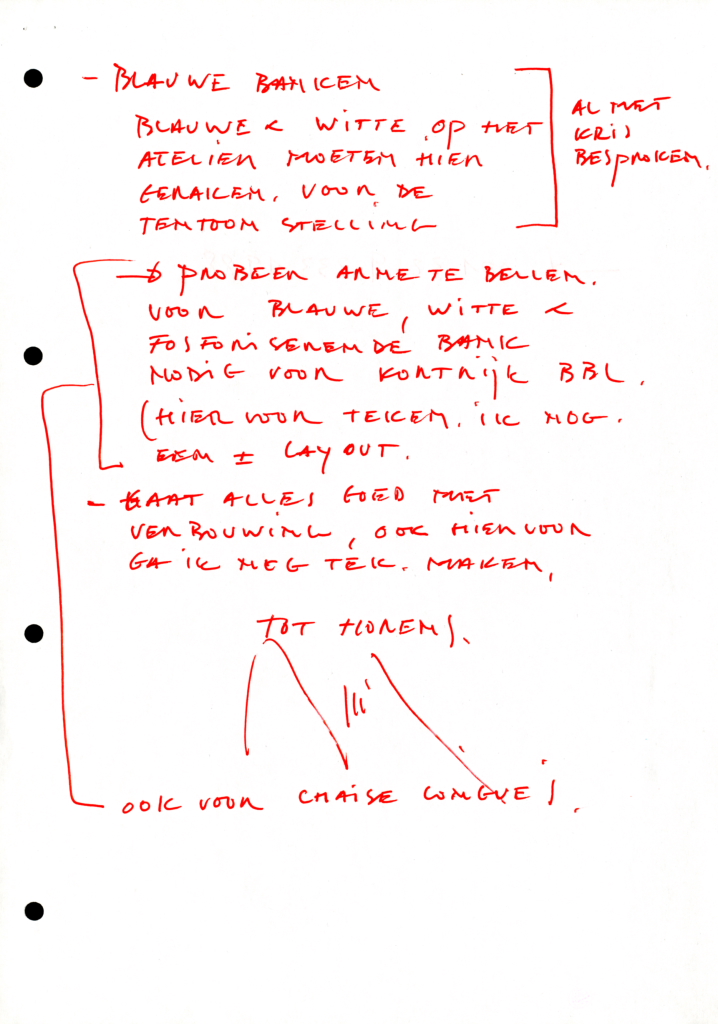 - BLAUWE BANKEN
BLAUWE & WITTE OP HET
ATELIER MOETEN HIER
GERAKEN. VOOR DE
TENTOONSTELLING
AL MET
KRIS
BESPROKEN.
→ PROBEER ANNE TE BELLEN.
VOOR BLAUWE, WITTE &
FOSFORISERENDE BANK
NODIG VOOR KORTRIJK BBL.
(HIERVOOR TEKEN. IK NOG.
EEN ± LAYOUT.
- GAAT ALLES GOED MET
VERBOUWING, OOK HIERVOOR
GA IK NOG TEK. MAKEN.
TOT HORENS.
OOK VOOR CHAISE LONGUE'S.